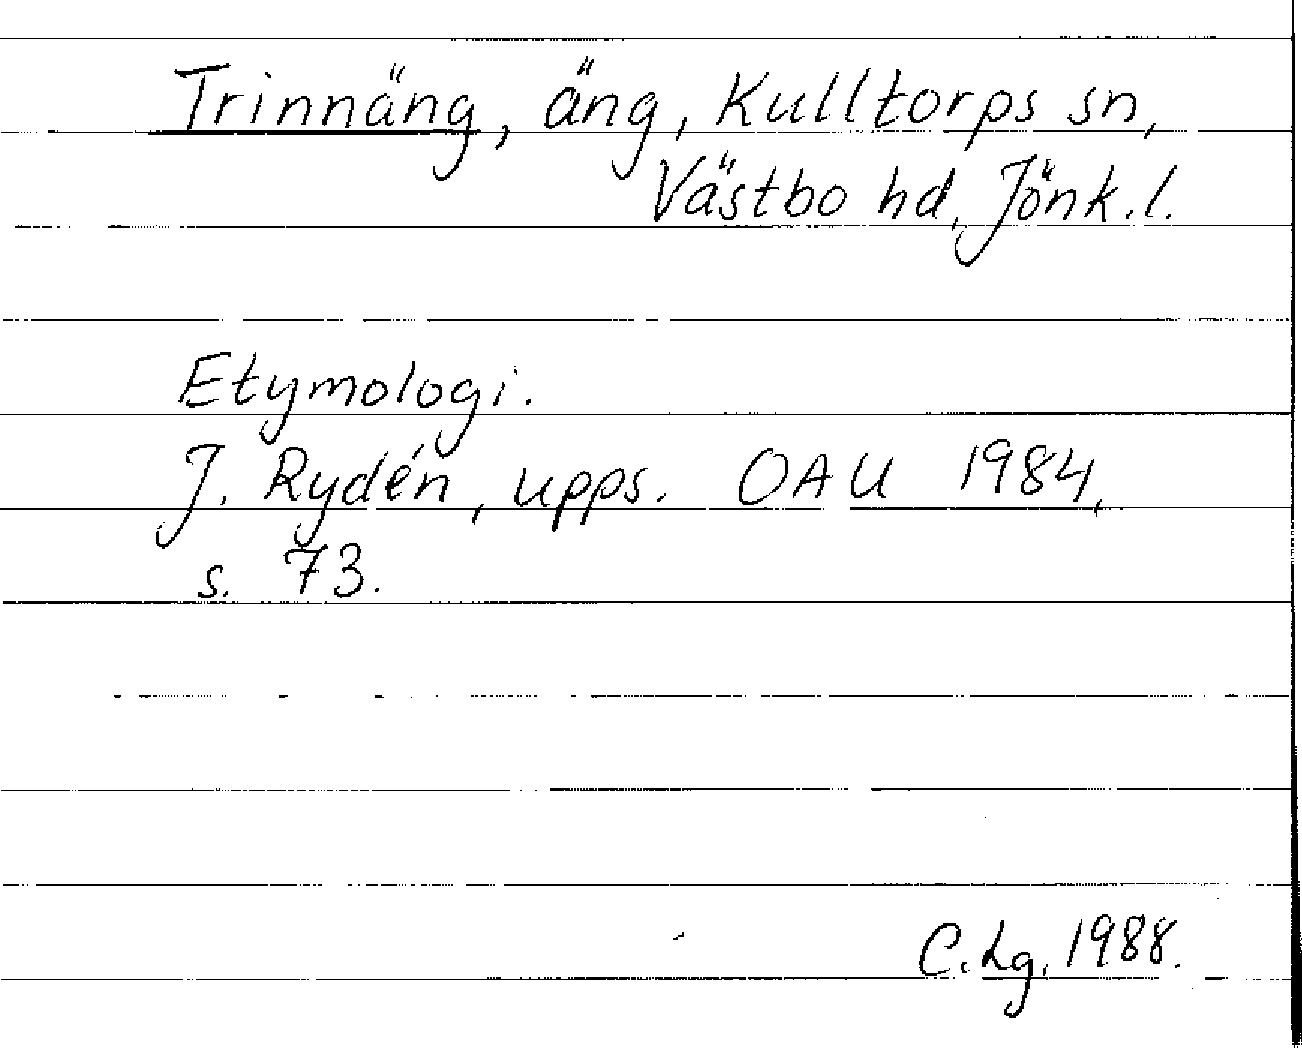 Trinnäng, äng, Kulltorps sn,
Västbo hd, Jönk.l.
Etymologi.
J. Rydén, upps. OAU 1984,
s. 73.
C.Lg. 1988.